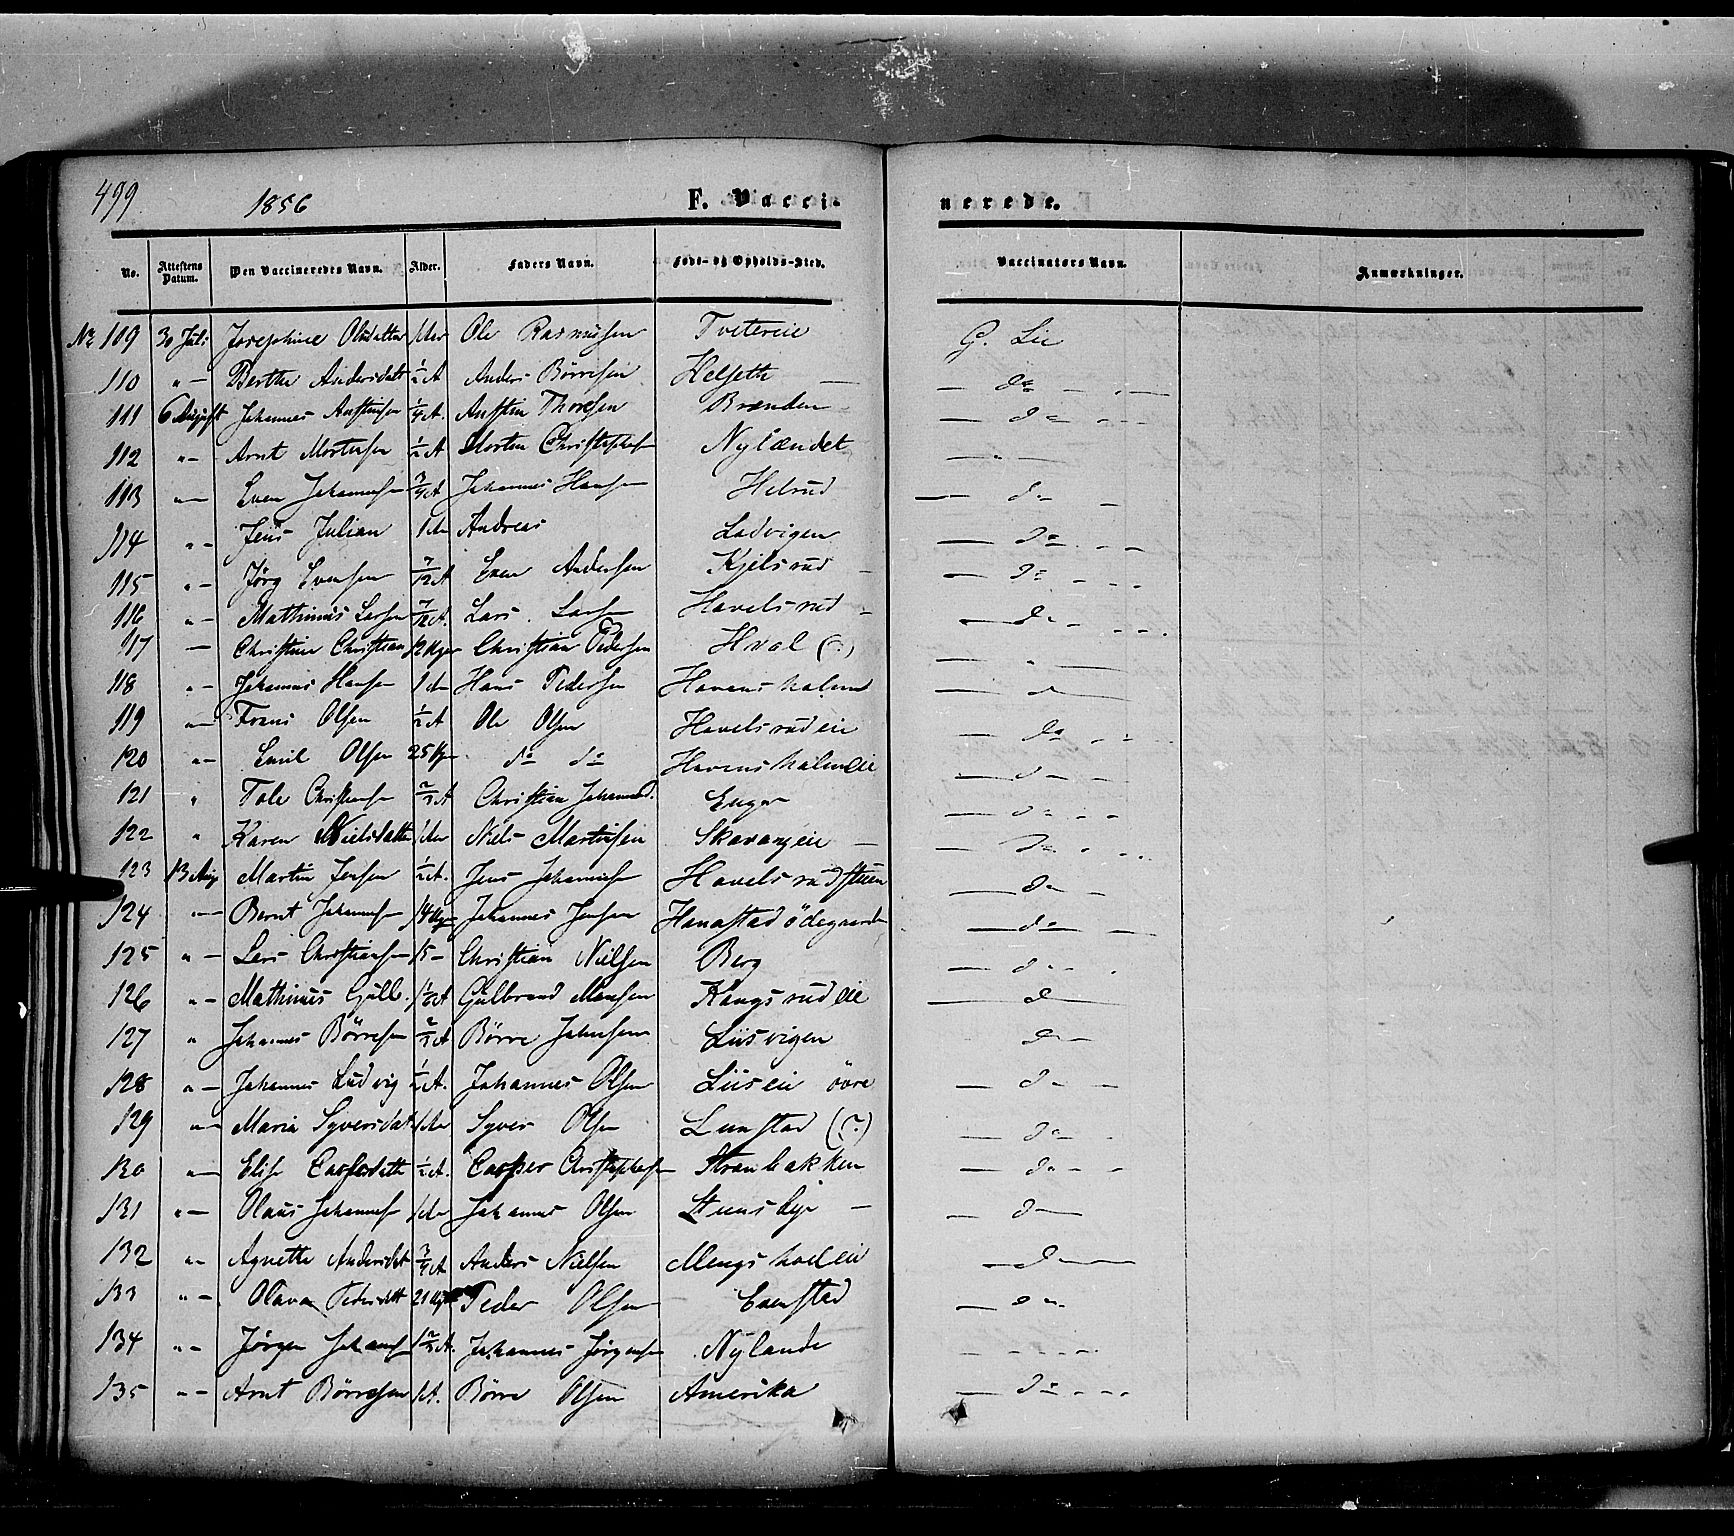 499 1856 F. Vacci- nerede.
No. Attestens Datum. Den Vaccineredes Navn. Alder. Faders Navn. Føde- og Opholds-Sted. Vaccinators Navn. Anmærkninger.
No 109 30 Juli Josephine Olsdatter 1 Ole Rasmussen Tvetereie G. Lie
110 "— Berthe Andersdatt 1/2 A Anders Börresen Helseth — do
111 6 August Johannes Anstinsen 1/4 A. Anstin Thoresen Brænden — do
112 "— Arnt Mortensen 1/2 A Morten Christophersen Nylændet — " —
113 "— Even Johannesen 3/4 A Johannes Hansen Helsrud — do —
114 "— Jens Julian 1 Andreas Ladvigen — do
115 "— Jørg Evensen 7/12 A Even Andersen Kjelsrud — do
116 "— Mathinus Larsen 7/12 A. Lars Larsen Havelsrud — do
117 — Christine Christian 12 Uger Christian Pedersen Hval (?) — " —
118 "— Johannes Hansen 1 Hans Pedersen Havensholm — d —
119 "— Frans Olsen 1/2 A Ole Olsen Havelsrudeie — do
120 "— Emil Olsen 25 Ug do do Havensholmeie — do
121 " Tole Christiansen 2/3 A Christian Johannes. Enger — do
122 " Karen Nielsdatter 1 Niels Martinsen Skavangeie — do
123 13 Aug Martin Jensen 1/2 A. Jens Johannesen Havelsrudstuen — do
124 "— Bernt Johannesen 14 Uger Johannes Jensen Hanastad ödegaarden — do
125 "— Lars Christiansen 15 — Christian Nielsen Berg — do
126 "— Mathinus Gulb. 1/2 A Gulbrand Monsen Kongsrudeie — d —
127 " Johannes Börresen 2/3 A Börre Johnsen Liisvigen do —
128 "— Johannes Ludvig 1/2 A. Johannes Olsen Liiseie övre — do —
129 "— Maria Syversdat 1 Syver Olsen Lunstad (?) — do
130 "— Elise Caspersdatt 1/2 A. Casper Christophersen Strænbakken — do
131 "— Olaus Johannesen 1 Johannes Olsen — do
132 "— Agnethe Andersdat 3/4 A Anders Nielsen Mengshoeleie — d —
133 "— Olava Pedersdatt 21 Uger Peder Olsen Evenstad — do
134 "— Jørgen Johannesen 1 2/3 A. Johannes Jørgensen Nylande — — — —
135 "— Arnt Börresen 1 A. Börre Olsen Amerika — do